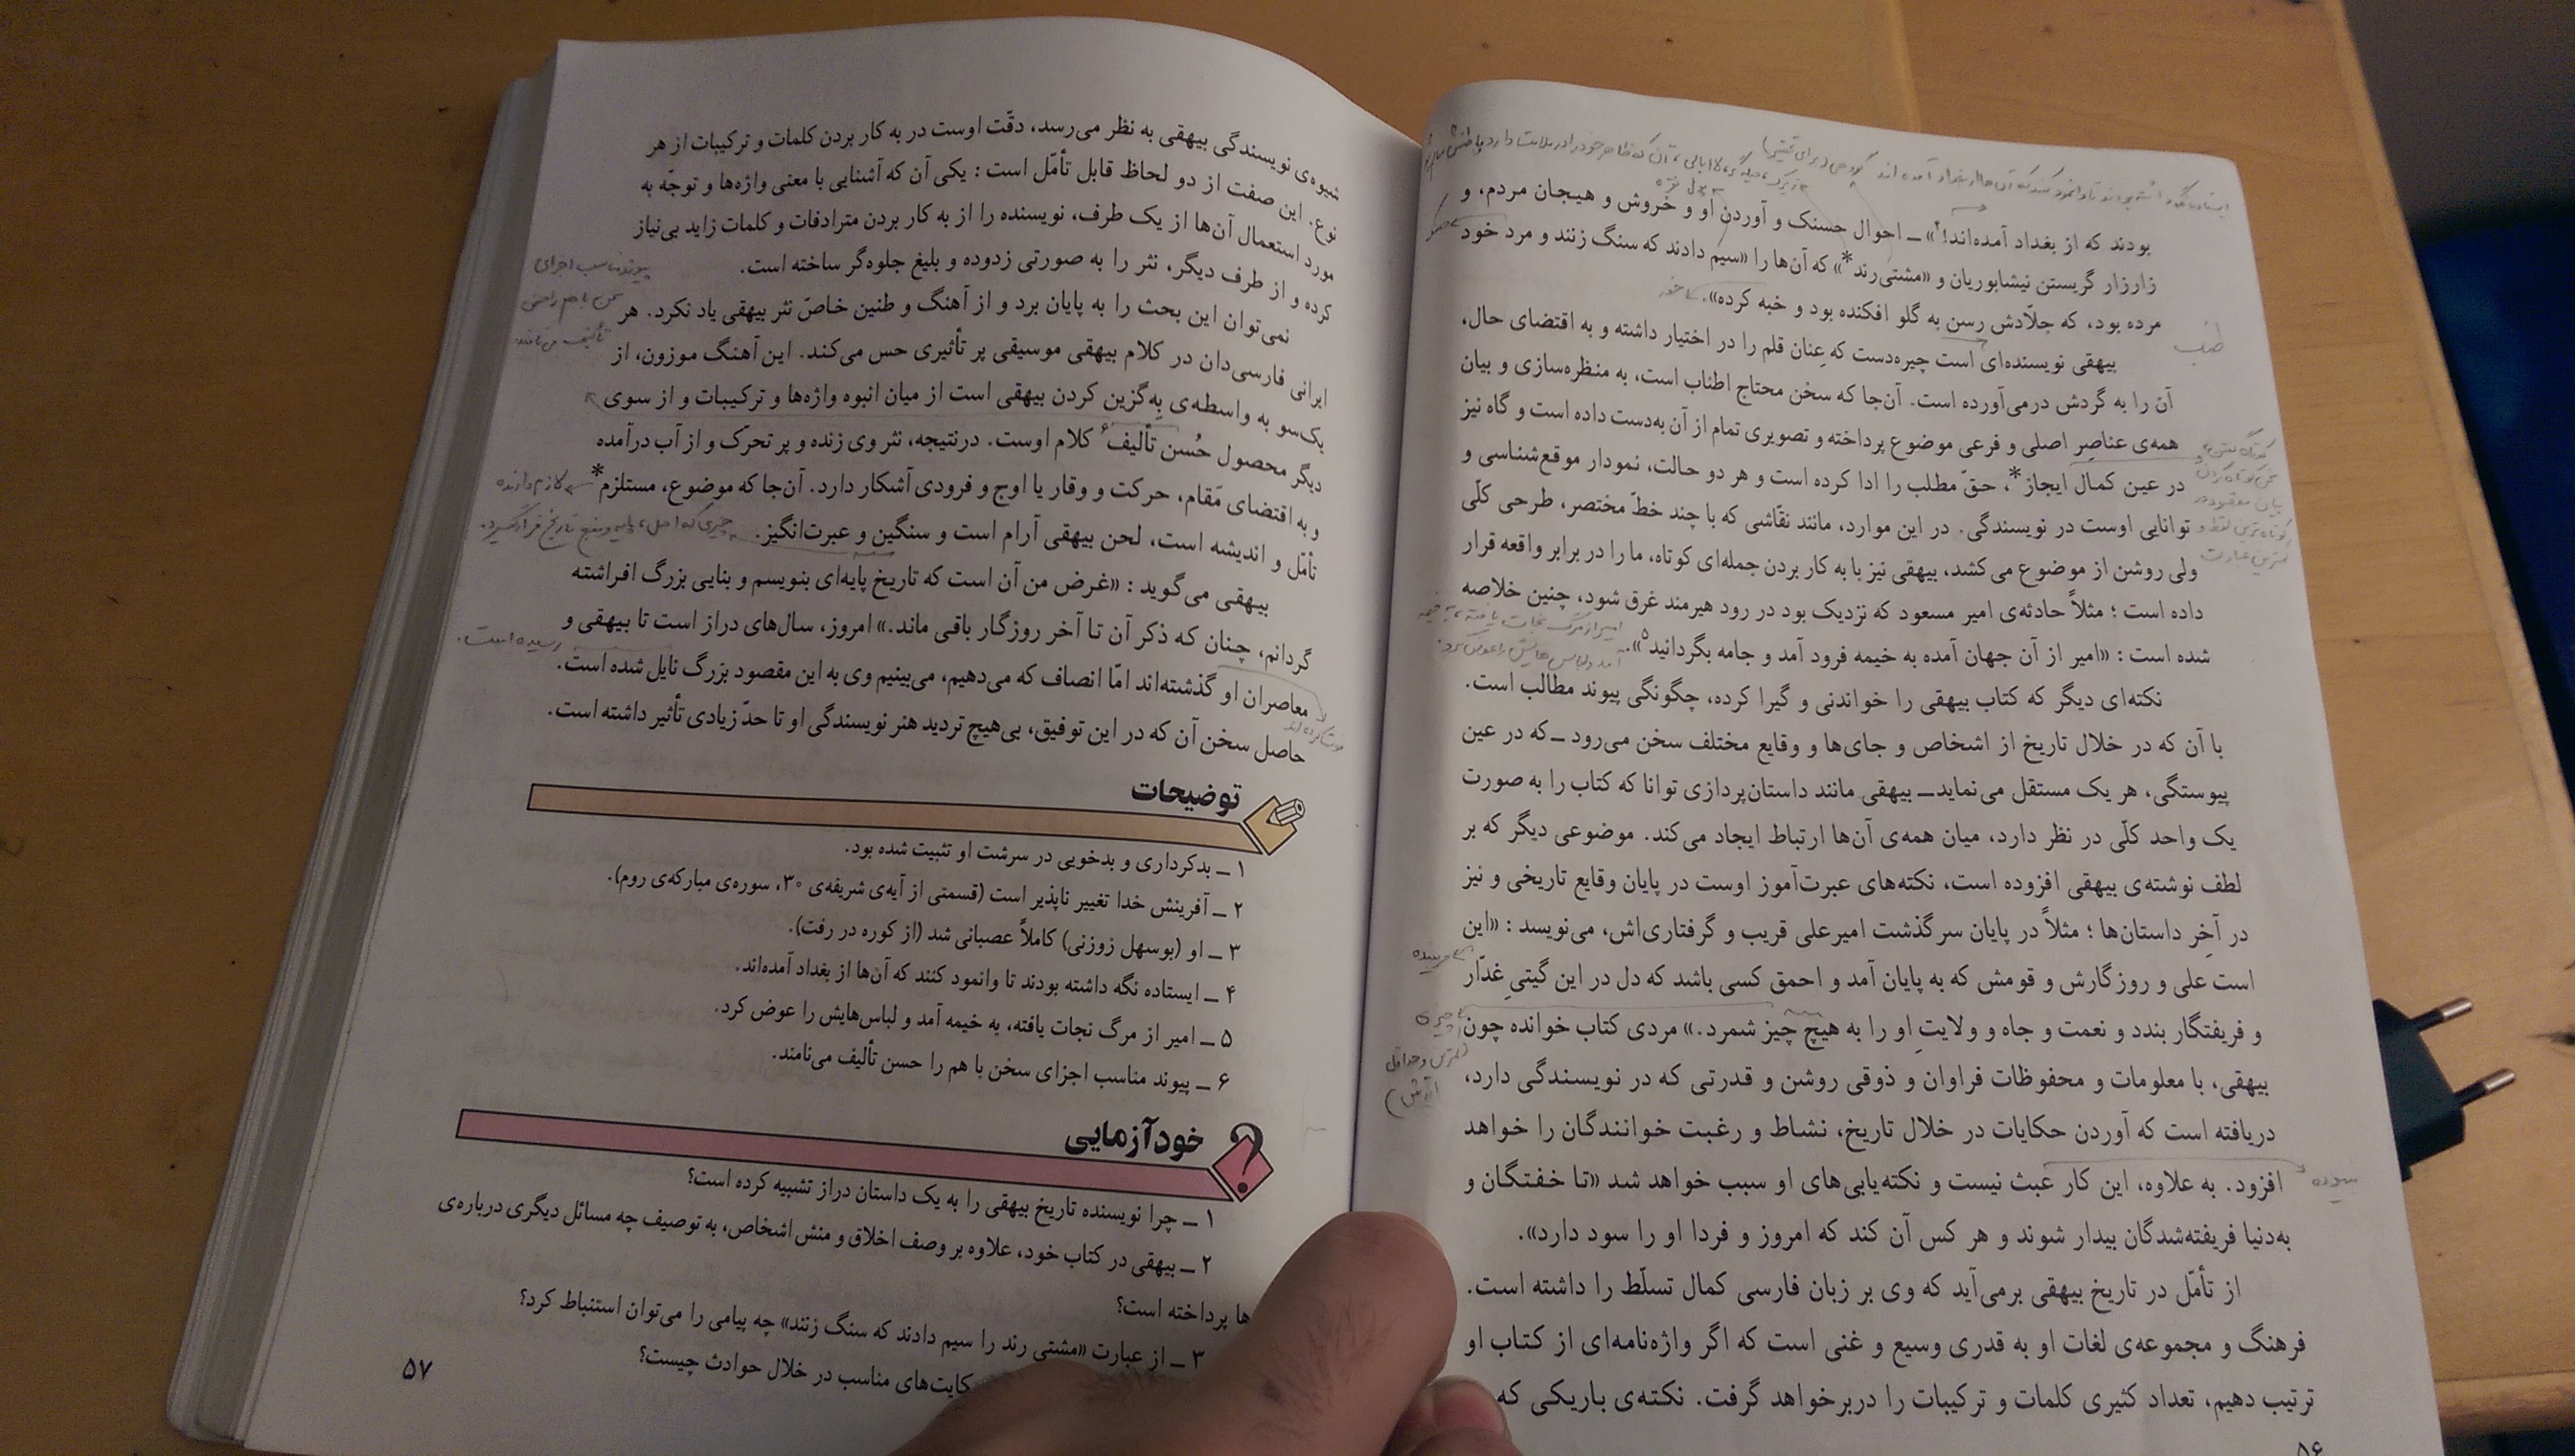 بودند که از بغداد آمده‌اند!۴» ــ احوال حسنک و آوردن او و خروش و هیجان مردم، و
زارزار گریستن نیشابوریان و «مشتی‌رند*» که آن‌ها را «سیم دادند که سنگ زنند و مرد خود
مرده بود، که جلّادش رسن به گلو افکنده بود و خبه کرده».
خفه
بیهقی نویسنده‌ای است چیره‌دست که عِنان قلم را در اختیار داشته و به اقتضای حال،
آن را به گردش درمی‌آورده است. آن‌جا که سخن محتاج اطناب است، به منظره‌سازی و بیان
همه‌ی عناصرِ اصلی و فرعی موضوع پرداخته و تصویری تمام از آن به‌دست داده است و گاه نیز
در عین کمال ایجاز*، حقّ مطلب را ادا کرده است و هر دو حالت، نمودار موقع‌شناسی و
توانایی اوست در نویسندگی. در این موارد، مانند نقّاشی که با چند خطّ مختصر، طرحی کلّی
ولی روشن از موضوع می‌کشد، بیهقی نیز با به کار بردن جمله‌ای کوتاه، ما را در برابر واقعه قرار
داده است ؛ مثلاً حادثه‌ی امیر مسعود که نزدیک بود در رود هیرمند غرق شود، چنین خلاصه
شده است : «امیر از آن جهان آمده به خیمه فرود آمد و جامه بگردانید۵».
امیر از مرگ نجات یافته، به خیمه
آمد و لباس‌هایش را عوض کرد.
نکته‌ای دیگر که کتاب بیهقی را خواندنی و گیرا کرده، چگونگی پیوند مطالب است.
با آن که در خلال تاریخ از اشخاص و جای‌ها و وقایع مختلف سخن می‌رود ــ‌که در عین
پیوستگی، هر یک مستقل می‌نماید‌ــ بیهقی مانند داستان‌پردازی توانا که کتاب را به صورت
یک واحد کلّی در نظر دارد، میان همه‌ی آن‌ها ارتباط ایجاد می‌کند. موضوعی دیگر که بر
لطف نوشته‌ی بیهقی افزوده است، نکته‌های عبرت‌آموز اوست در پایان وقایع تاریخی و نیز
در آخِرِ داستان‌ها ؛ مثلاً در پایان سرگذشت امیرعلی قریب و گرفتاری‌اش، می‌نویسد : «این
است علی و روزگارش و قومش که به پایان آمد و احمق کسی باشد که دل در این گیتیِ غدّار
و فریفتگار بندد و نعمت و جاه و ولایتِ او را به هیچ چیز شمرد.» مردی کتاب خوانده چون
بیهقی، با معلومات و محفوظات فراوان و ذوقی روشن و قدرتی که در نویسندگی دارد،
دریافته است که آوردن حکایات در خلال تاریخ، نشاط و رغبت خوانندگان را خواهد
افزود. به علاوه، این کار عبث نیست و نکته‌یابی‌های او سبب خواهد شد «تا خفتگان و
به‌دنیا فریفته‌شدگان بیدار شوند و هر کس آن کند که امروز و فردا او را سود دارد».
از تأمّل در تاریخ بیهقی برمی‌آید که وی بر زبان فارسی کمال تسلّط را داشته است.
فرهنگ و مجموعه‌ی لغات او به قدری وسیع و غنی است که اگر واژه‌نامه‌ای از کتاب او
ترتیب دهیم، تعداد کثیری کلمات و ترکیبات را دربرخواهد گرفت. نکته‌ی باریکی که
۵۶
شیوه‌ی نویسندگی بیهقی به نظر می‌رسد، دقّت اوست در به کار بردن کلمات و ترکیبات از هر
نوع. این صفت از دو لحاظ قابل تأمّل است : یکی آن که آشنایی با معنی واژه‌ها و توجّه به
مورد استعمال آن‌ها از یک طرف، نویسنده را از به کار بردن مترادفات و کلمات زاید بی‌نیاز
کرده و از طرف دیگر، نثر را به صورتی زدوده و بلیغ جلوه‌گر ساخته است.
نمی‌توان این بحث را به پایان برد و از آهنگ و طنین خاصّ نثر بیهقی یاد نکرد. هر
ایرانی فارسی‌دان در کلام بیهقی موسیقی پر تأثیری حس می‌کند. این آهنگ موزون، از
یک‌سو به واسطه‌ی به‌گزین کردن بیهقی است از میان انبوه واژه‌ها و ترکیبات و از سوی
دیگر محصول حُسن تألیف۶ کلام اوست. درنتیجه، نثر وی زنده و پر تحرّک و از آب درآمده
و به اقتضای مَقام، حرکت و وقار یا اوج و فرودی آشکار دارد. آن‌جا که موضوع، مستلزم*
لازم دارنده
تأمّل و اندیشه است، لحن بیهقی آرام است و سنگین و عبرت‌انگیز.
بیهقی می‌گوید : «غرض من آن است که تاریخ پایه‌ای بنویسم و بنایی بزرگ افراشته
گردانم، چنان که ذکر آن تا آخر روزگار باقی ماند.» امروز، سال‌های دراز است تا بیهقی و
معاصران او گذشته‌اند امّا انصاف که می‌دهیم، می‌بینیم وی به این مقصود بزرگ نایل شده است.
رسیده است.
حاصل سخن آن که در این توفیق، بی‌هیچ تردید هنر نویسندگی او تا حدّ زیادی تأثیر داشته است.
توضیحات
۱ ــ بدکرداری و بدخویی در سرشت او تثبیت شده بود.
۲ ــ آفرینش خدا تغییر ناپذیر است (قسمتی از آیه‌ی شریفه‌ی ۳۰، سوره‌ی مبارکه‌ی روم).
۳ ــ او (بوسهل زوزنی) کاملاً عصبانی شد (از کوره در رفت).
۴ ــ ایستاده نگه داشته بودند تا وانمود کنند که آن‌ها از بغداد آمده‌اند.
۵ ــ امیر از مرگ نجات یافته، به خیمه آمد و لباس‌هایش را عوض کرد.
۶ ــ پیوند مناسب اجزای سخن با هم را حسن تألیف می‌نامند.
خودآزمایی
۱ ــ چرا نویسنده تاریخ بیهقی را به یک داستان دراز تشبیه کرده است؟
۲ ــ بیهقی در کتاب خود، علاوه بر وصف اخلاق و منش اشخاص، به توصیف چه مسائل دیگری درباره‌ی
ها پرداخته است؟
۳ ــ از عبارت «مشتی رند را سیم دادند که سنگ زنند» چه پیامی را می‌توان استنباط کرد؟
کایت‌های مناسب در خلال حوادث چیست؟
۵۷